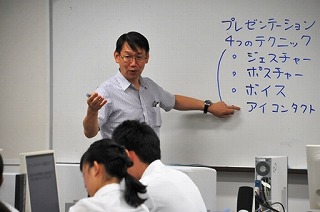 プレゼンテーション
4つのテクニック
○ ジェスチャー
○ ポスチャー
○ ボイス
○ アイコンタクト